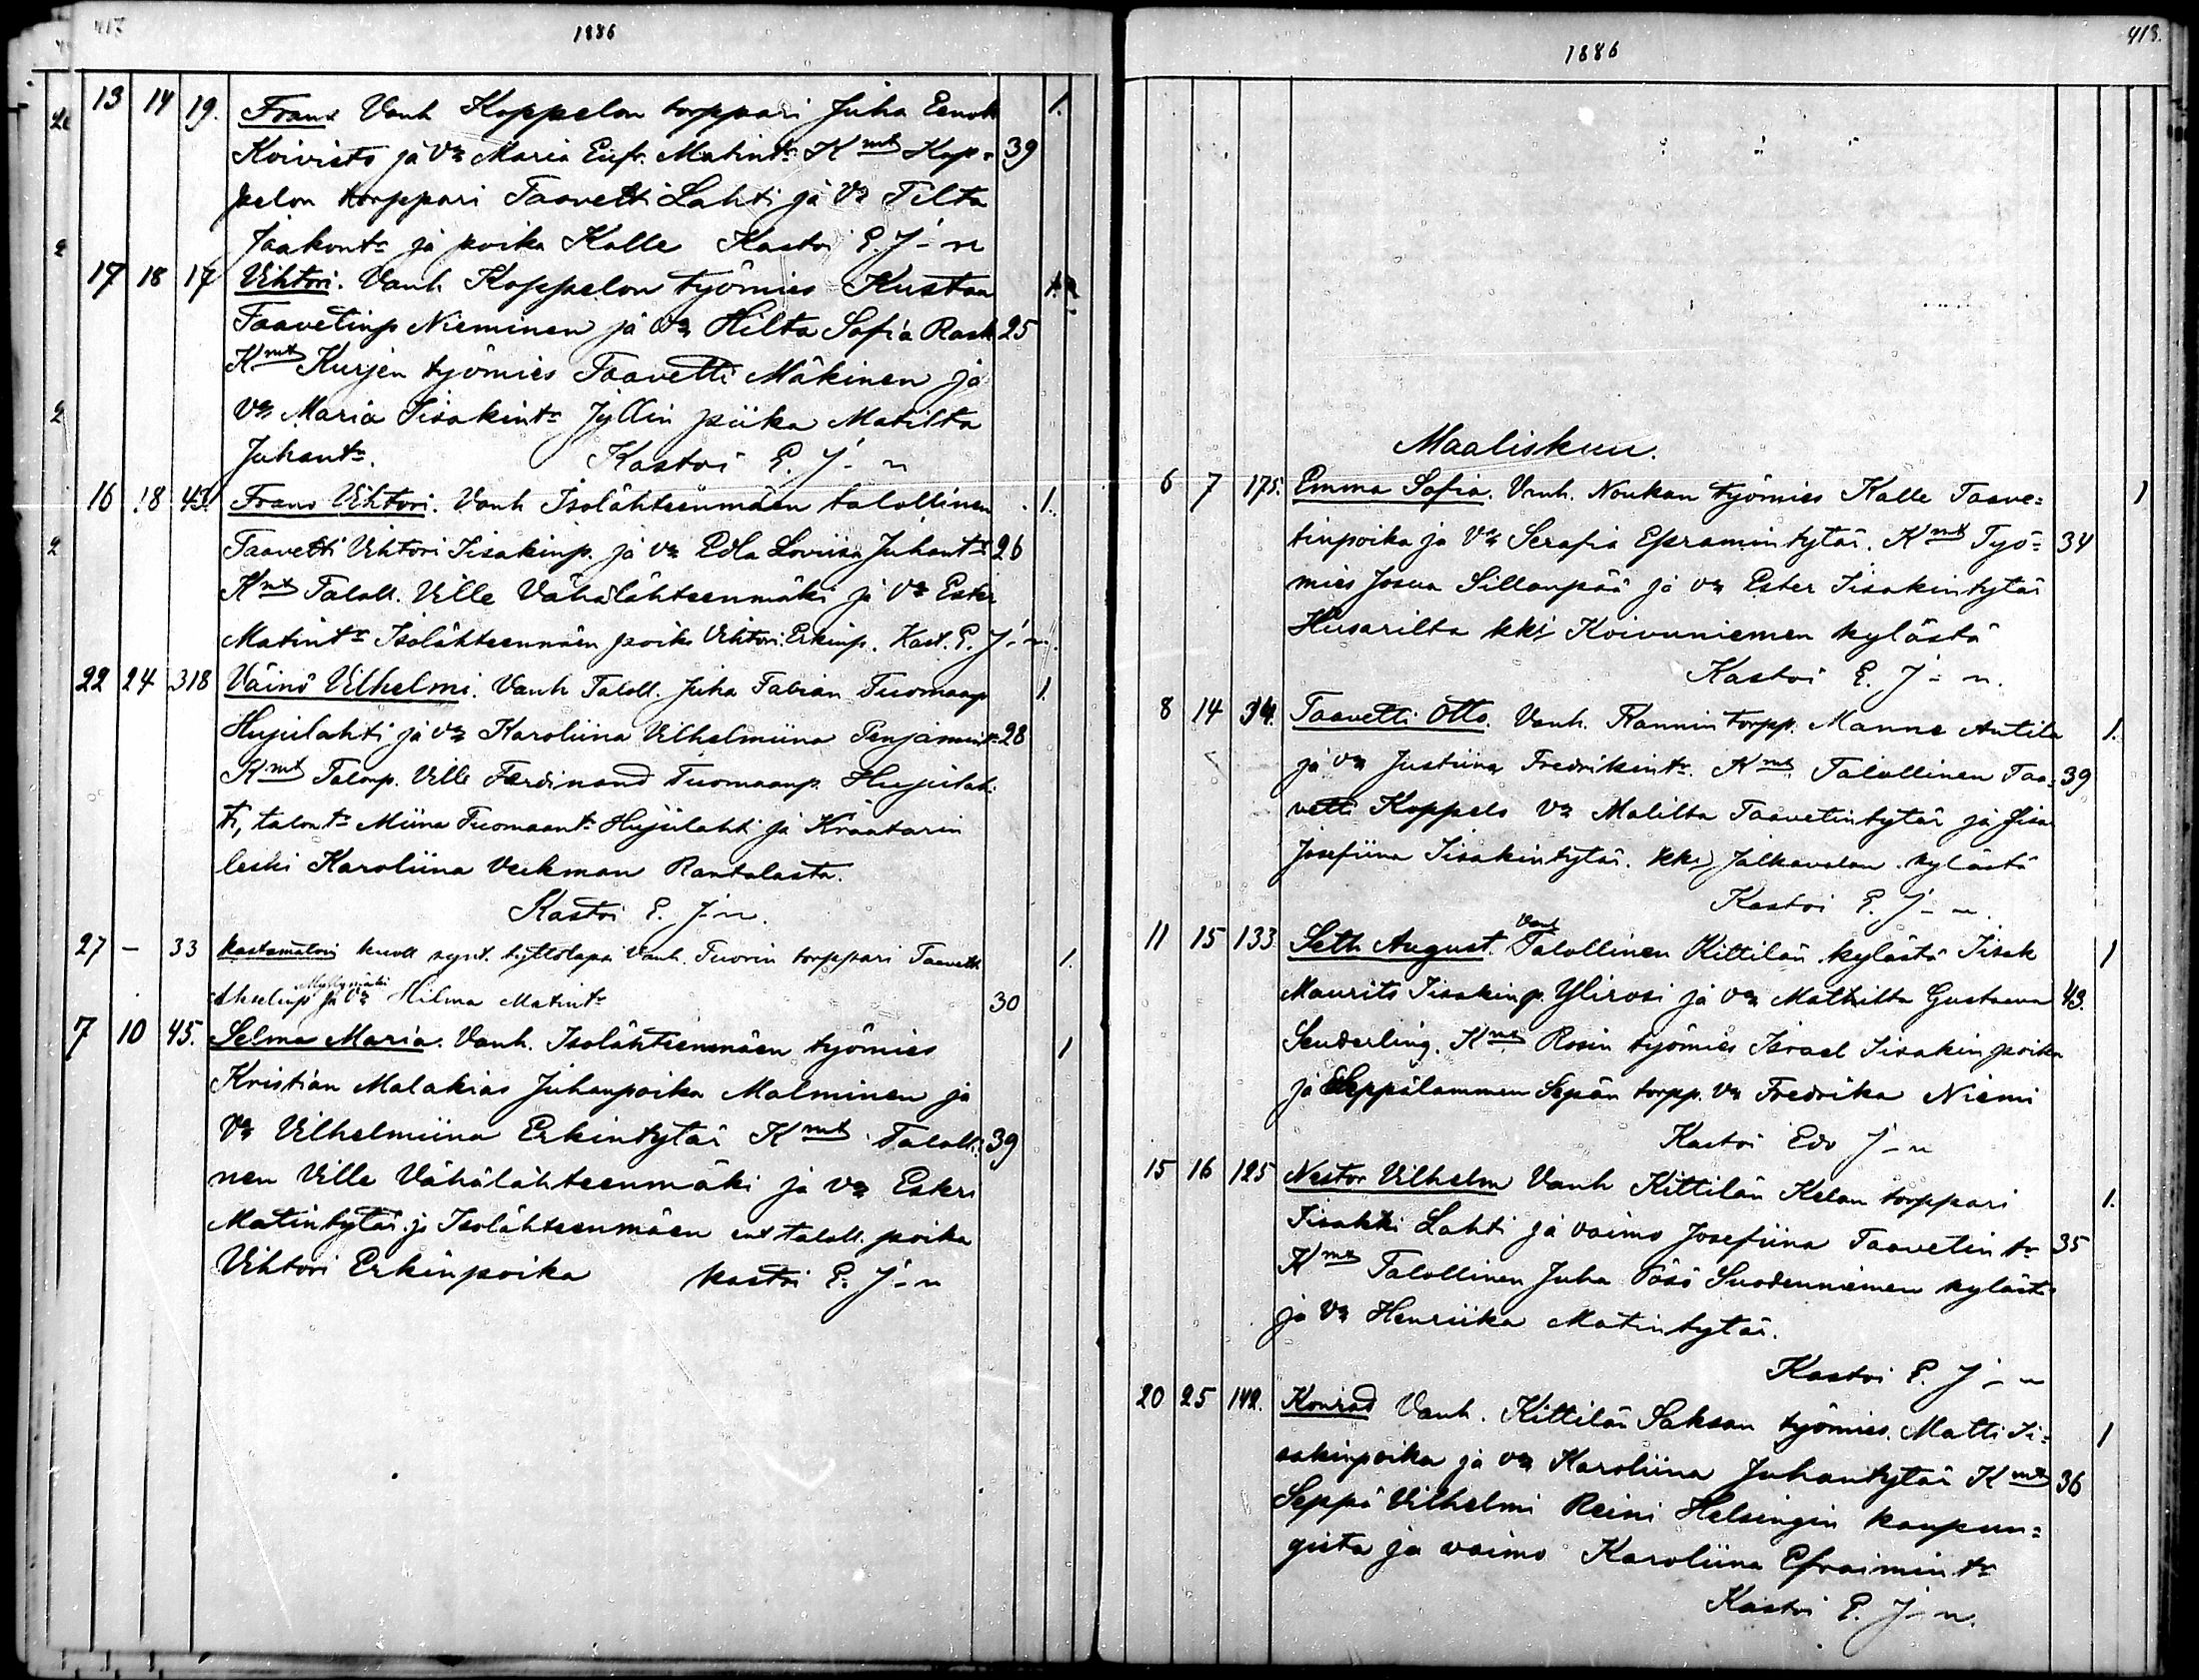 417
1886
13 14 19. Frans Vanh Koppelon torppari Juha Eenok 1.
Koivisto ja Vo Maria Eufr. Matint. Kmt Kop- 39
pelon torppari Taavetti Lahti ja Vo Tilta
Jaakont. ja poika Kalle Kastoi E. J-n
17 18 17 Vihtori. Vanh Koppelon työmies Kustaa
Taavetinp Nieminen ja Vo Hilta Sofia Rask 25
Kmt Kurjen työmies Taavetti Mäkinen ja
Vo Maria Iisakint. Jyllin piika Matilta
Juhant. Kastoi E. J-n
16 18 43. Frans Vihtori. Vanh Isolähteenmäen talollinen 1.
Taavetti Vihtori Iisakinp. ja vo Edla Loviisa Juhant. 26
Kmt Taloll. Ville Vähälähteenmäki ja Vo Ester
Matint. Isolähteenmäen poika Vihtori Erkinp. Kast. E. J-n.
22 24 318 Väinö Vilhelmi. Vanh Taloll. Juha Fabian Tuomaanp 1.
Hujulahti ja vo Karoliina Vilhelmiina Penjamint. 28
Kmt Talonp. Ville Ferdinand Tuomaanp. Hujulah-
ti, talont. Miina Tuomaant. Hujulahti ja Kraatarin
leski Karoliina Vekman Rantalasta.
Kastoi E. J-n.
27 - 33 kastamatoin kuoll synt. tyttölapsi Vanh. Tuorin torppari Taavetti 1.
Akselinp Myllymäki ja Vo Hilma Matint. 30
7 10 45. Selma Maria. Vanh. Isolähteenmäen työmies 1
Kristian Malakias Juhanpoika Malminen ja
Vo Vilhelmiina Erkintytär Kmt Taloll- 39
nen Ville Vähälähteenmäki ja Vo Esteri
Matintytär ja Isolähteenmäen ent taloll. poika
Vihtori Erkinpoika kastoi E. J-n
418.
1886
Maaliskuu.
6 7 175. Emma Sofia. Vanh. Noukan työmies Kalle Taave= 1
tinpoika ja Vo Serafia Efraimintytär. Kmt Työ= 34
mies Josua Sillanpää ja vo Ester Iisakintytär
Husarilta kkj Koivuniemen kylästä
Kastoi E. J-n.
8 14 34. Taavetti Otto. Vanh. Rannin torpp. Manne Antila 1.
ja vo Justiina Fredrikint. Kmt Talollinen Taa- 39
vetti Koppelo Vo Malilta Taavetintytär ja
Josefiina Iisakintytär. kkj Jalkavalan kylästä
Kastoi E. J-n.
11 15 133 Seth August. Vanh Talollinen Kittilän kylästä Iisak 1
Maurits Iisakinp. Ylirosi ja vo Mathilta Gustaava 43.
Senderling. Kmt Rosin työmies Israel Iisakinpoika
ja Seppälammen Sepän torpp. Vo Fredrika Niemi
Kastoi Edv J-n
15 16 125 Nestor Vilhelm Vanh Kittilän Kelan torppari 1.
Iisakki Lahti ja vaimo Josefiina Taavetin tr 35
Kmt Talollinen Juha Pösö Suodenniemen kyläst.
ja Vo Henriika Matintytär.
Kastoi E. J-n
20 25 142. Konrad Vanh. Kittilän Saksan työmies Matti Ii= 1
sakinpoika ja vo Karoliina Juhantytär Kmt 36
Seppä Vilhelmi Reini Helsingin kaupun=
gista ja vaimo Karoliina Efraimin tr
Kastoi E. J-n.